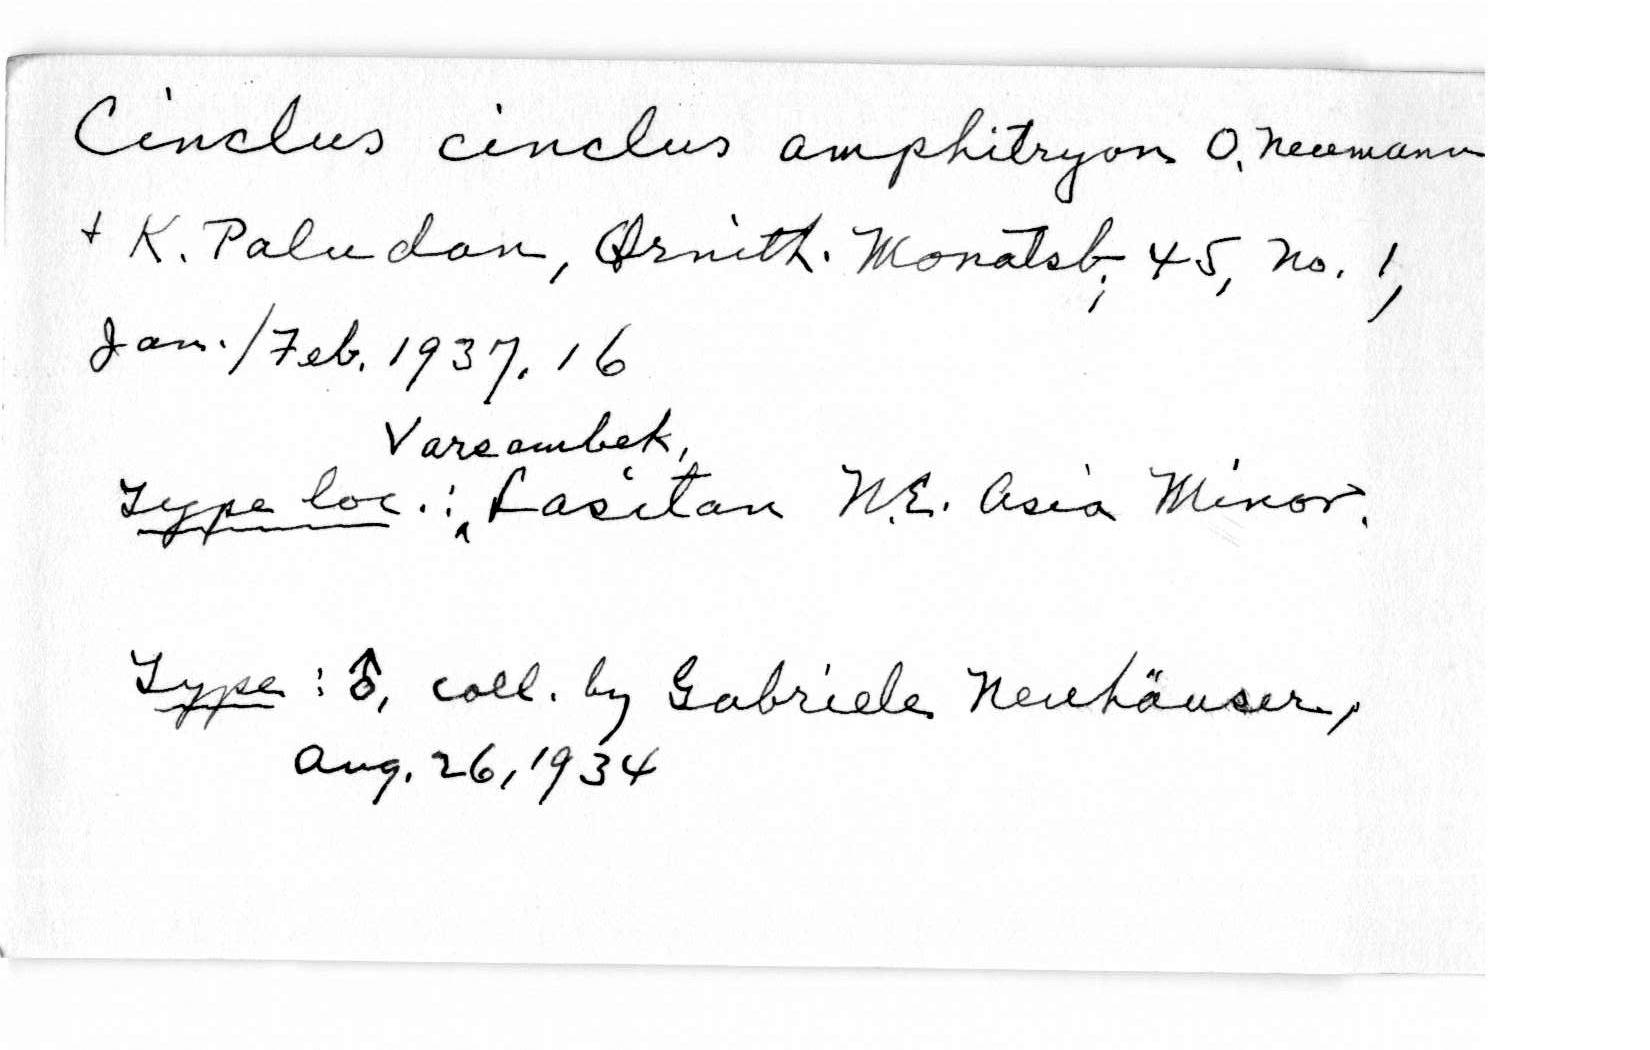 Cinclus cinclus amphitryon O. Neumann
+ K. Paludan, Ornith. Monatsb., 45, no. 1,
Jan./Feb. 1937, 16
Varsambek,
Type loc.: ‸ Lasitan N.E. Asia Minor.
Type: ♂, coll. by Gabriele Neuhäuser,
Aug. 26, 1934